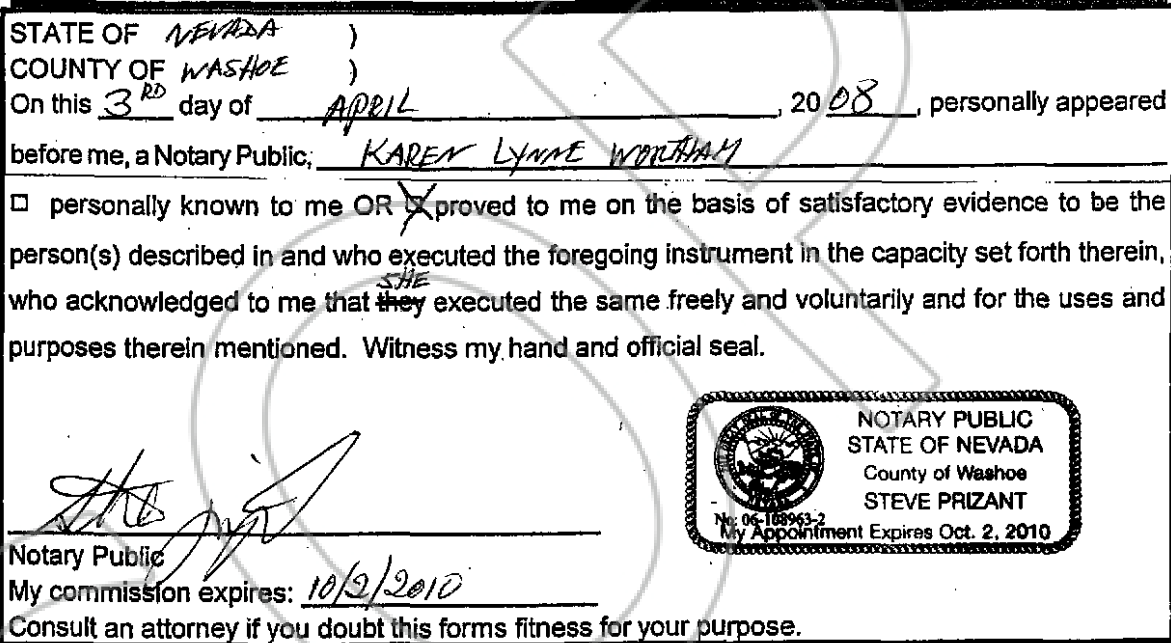 STATE OF NEVADA )
COUNTY OF WASHOE )
On this 3RD day of APRIL, 2008, personally appeared
before me, a Notary Public, KAREN LYNNE WORTHAM
□ personally known to me OR ☒ proved to me on the basis of satisfactory evidence to be the
person(s) described in and who executed the foregoing instrument in the capacity set forth therein,
SHE
who acknowledged to me that they executed the same freely and voluntarily and for the uses and
purposes therein mentioned. Witness my hand and official seal.
NOTARY PUBLIC
STATE OF NEVADA
County of Washoe
STEVE PRIZANT
No: 06-108963-2
My Appointment Expires Oct. 2, 2010
Notary Public
My commission expires: 10/2/2010
Consult an attorney if you doubt this forms fitness for your purpose.